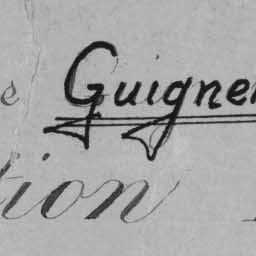 e Guigner
tion